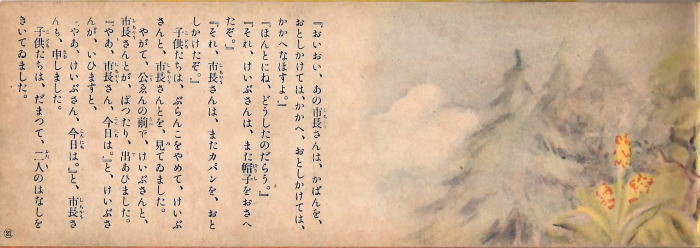 『おいおい、あの市長さんは、かばんを、
おとしかけては、かかへ、おとしかけては、
かかへなほすよ。』
『ほんとにね、どうしたのだらう。』
『それ、けいぶさんは、また帽子をおさへ
たぞ。』
『それ、市長さんは、またカバンを、おと
しかけたぞ。』
子供たちは、ぶらんこをやめて、けいぶ
さんと、市長さんとを、見てゐました。
やがて、公ゑんの前で、けいぶさんと、
市長さんとが、ぱつたり、出あひました。
『やあ、市長さん、今日は。』と、けいぶさ
んが、いひますと、
『やあ、けいぶさん、今日は。』と、市長さ
んも、申しました。
子供たちは、だまつて、二人のはなしを
きいてゐました。